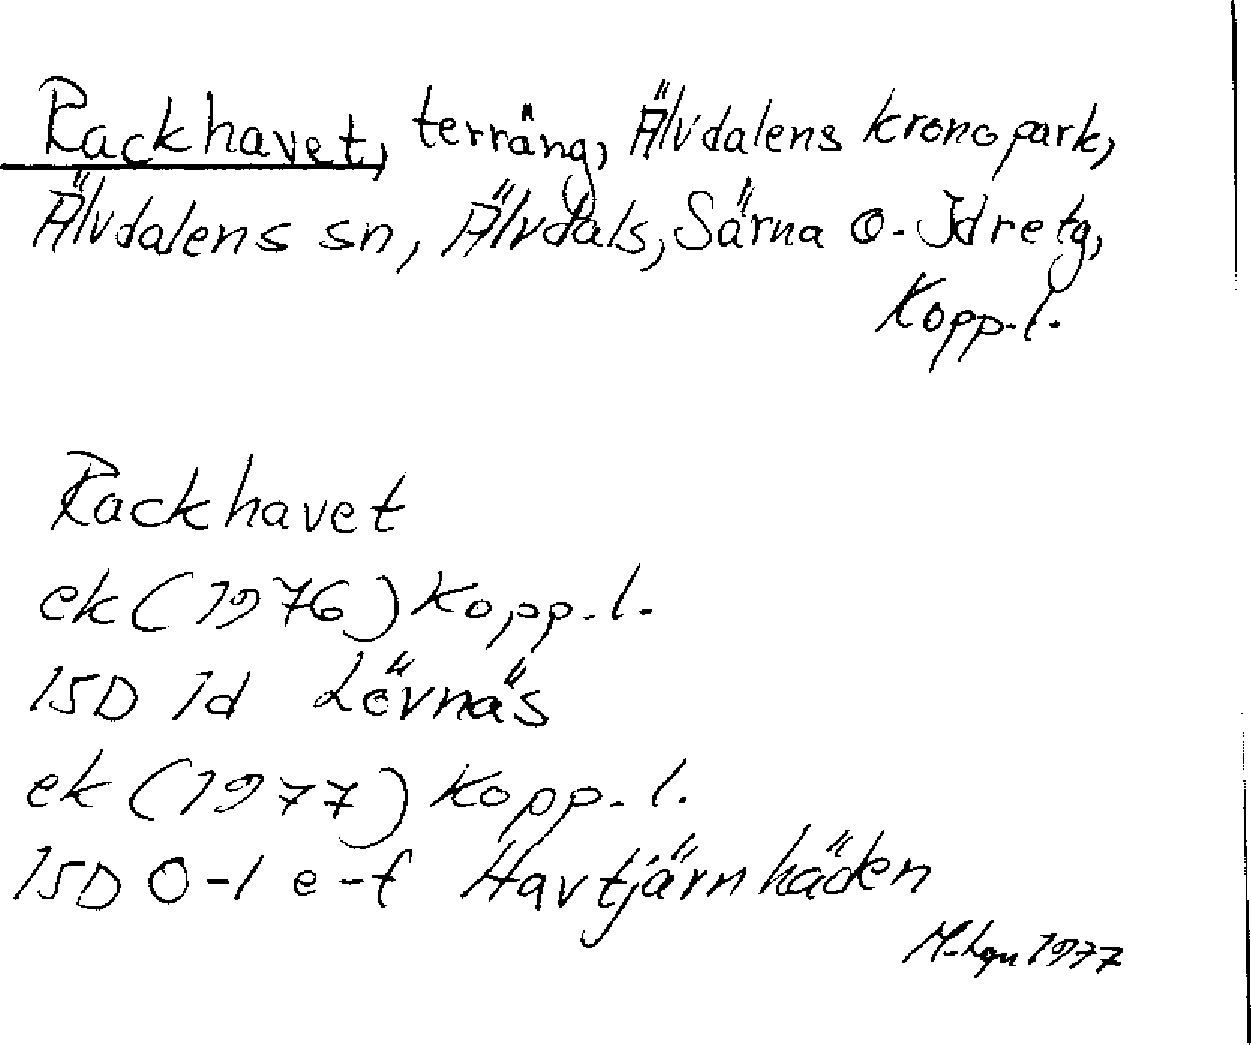 Rackhavet, terräng, Älvdalens kronopark,
Älvdalens sn, Älvdals, Särna o. Idre tg,
Kopp. l.
Rackhavet
ek (1976) Kopp. l.
15D 1d Lövnäs
ek (1977) Kopp. l.
15D 0-1 e-f Havtjärnhäden
1977